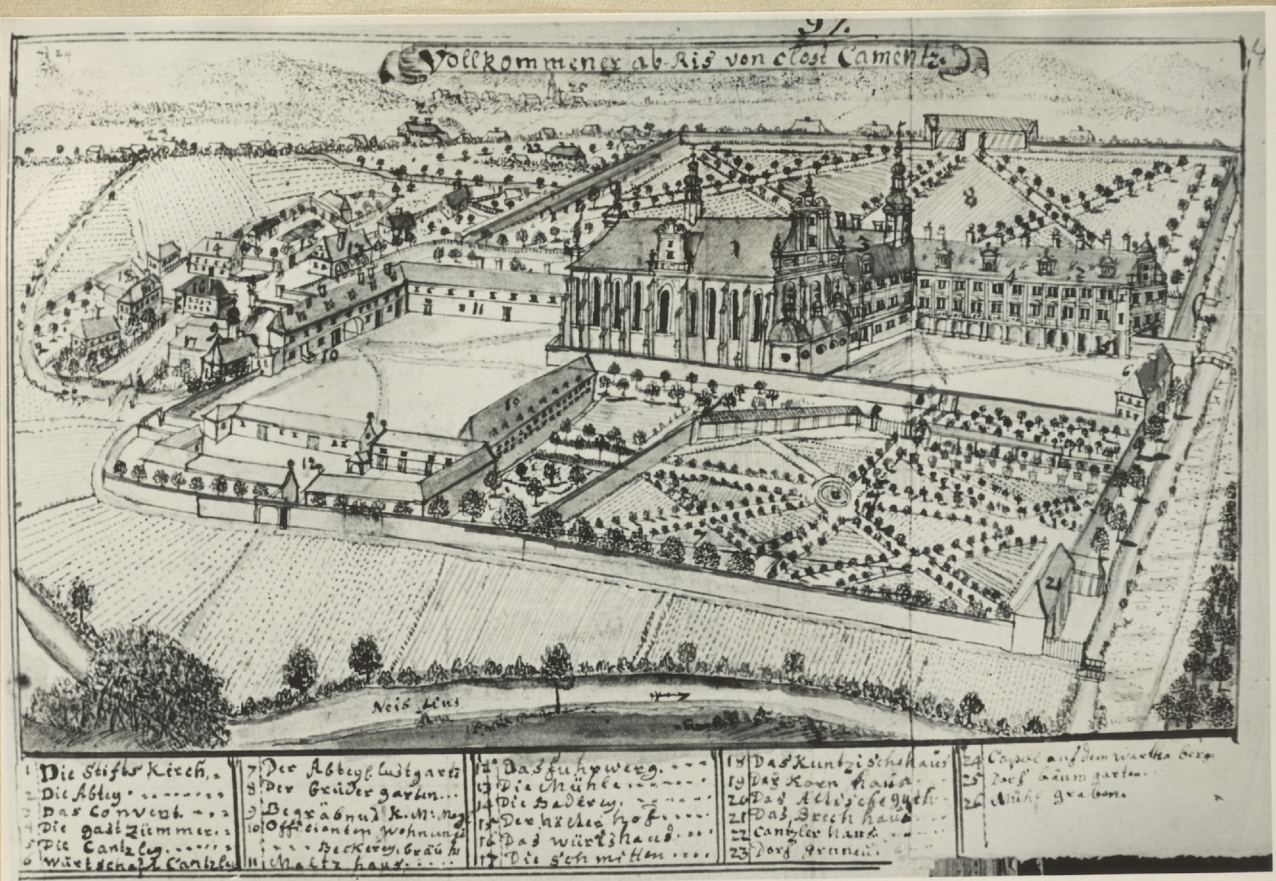 97.
Vollkommener ab-Ris von Clost Camentz.
Neis flus
1 Die Stiffts Kirch.
2 Die Abtey
3 Das Convent.
4 Die gast Zimmer.
5 Die Cantzley.
6 Würtschafft Cantzley
7 Der Abteyl. lustgart
8 Der brüder garten
9 Begräbnuß K. M.
10 Officianten Wohnung
Beckerey. bräuh
11 Maltz haus
12 Das fuhrwerg.
13 Die Mühle
14 Die baderey.
15 Der höcker hof
16 Das würtshaus
17 Die schmitten
18 Das Kuntzische haus
19 Das Korn haus
20 Das Altische guth
21 Das Brech haus
22 Cantzler haus
23 Dorf grunau
24 Capel auf dem wartha berg
25 Dorf baum garten
26 Mühl graben